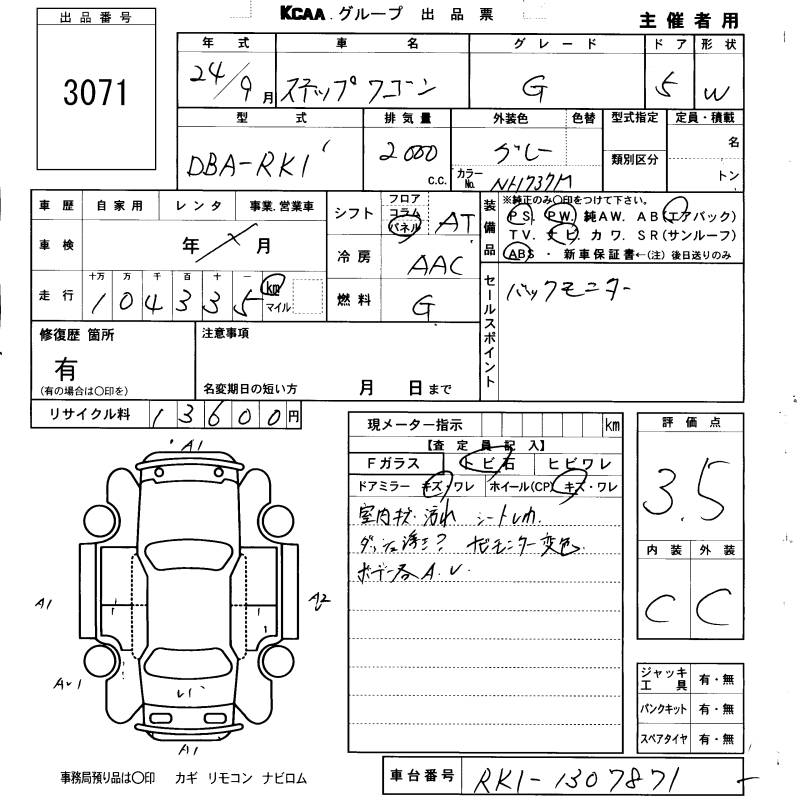 KCAA グループ 出品票
主催者用
出品番号
3071
年式 車名 グレード ドア 形状
24/9月 ステップワゴン G 5 W
型式 排気量 外装色 色替 型式指定 定員・積載
DBA-RK1 2000 c.c. グレー 名
カラーNo. NH737M 類別区分 トン
車歴 自家用 レンタ 事業.営業車
車検 年 月
走行 十万 万 千 百 十 一
104335 km マイル
シフト フロア コラム パネル AT
冷房 AAC
燃料 G
装備品 ※純正のみ○印をつけて下さい。
PS. PW. 純AW. AB(エアバック)
TV. ナビ. カワ. SR(サンルーフ)
ABS ・ 新車保証書←(注)後日送りのみ
セールスポイント バックモニター
修復歴 箇所
有
(有の場合は○印を)
注意事項
名変期日の短い方 月 日まで
リサイクル料 13600円
現メーター指示 km
【査定員記入】
Fガラス トビ石 ヒビワレ
ドアミラー キズ・ワレ ホイール(CP) キズ・ワレ
室内 汚れ シート
ダッシュ浮き? ナビモニター変色
ボデー各A.U.
評価点
3.5
内装 外装
C C
ジャッキ工具 有・無
パンクキット 有・無
スペアタイヤ 有・無
A1
A1
A2
A1
事務局預り品は○印 カギ リモコン ナビロム
車台番号 RK1-1307871